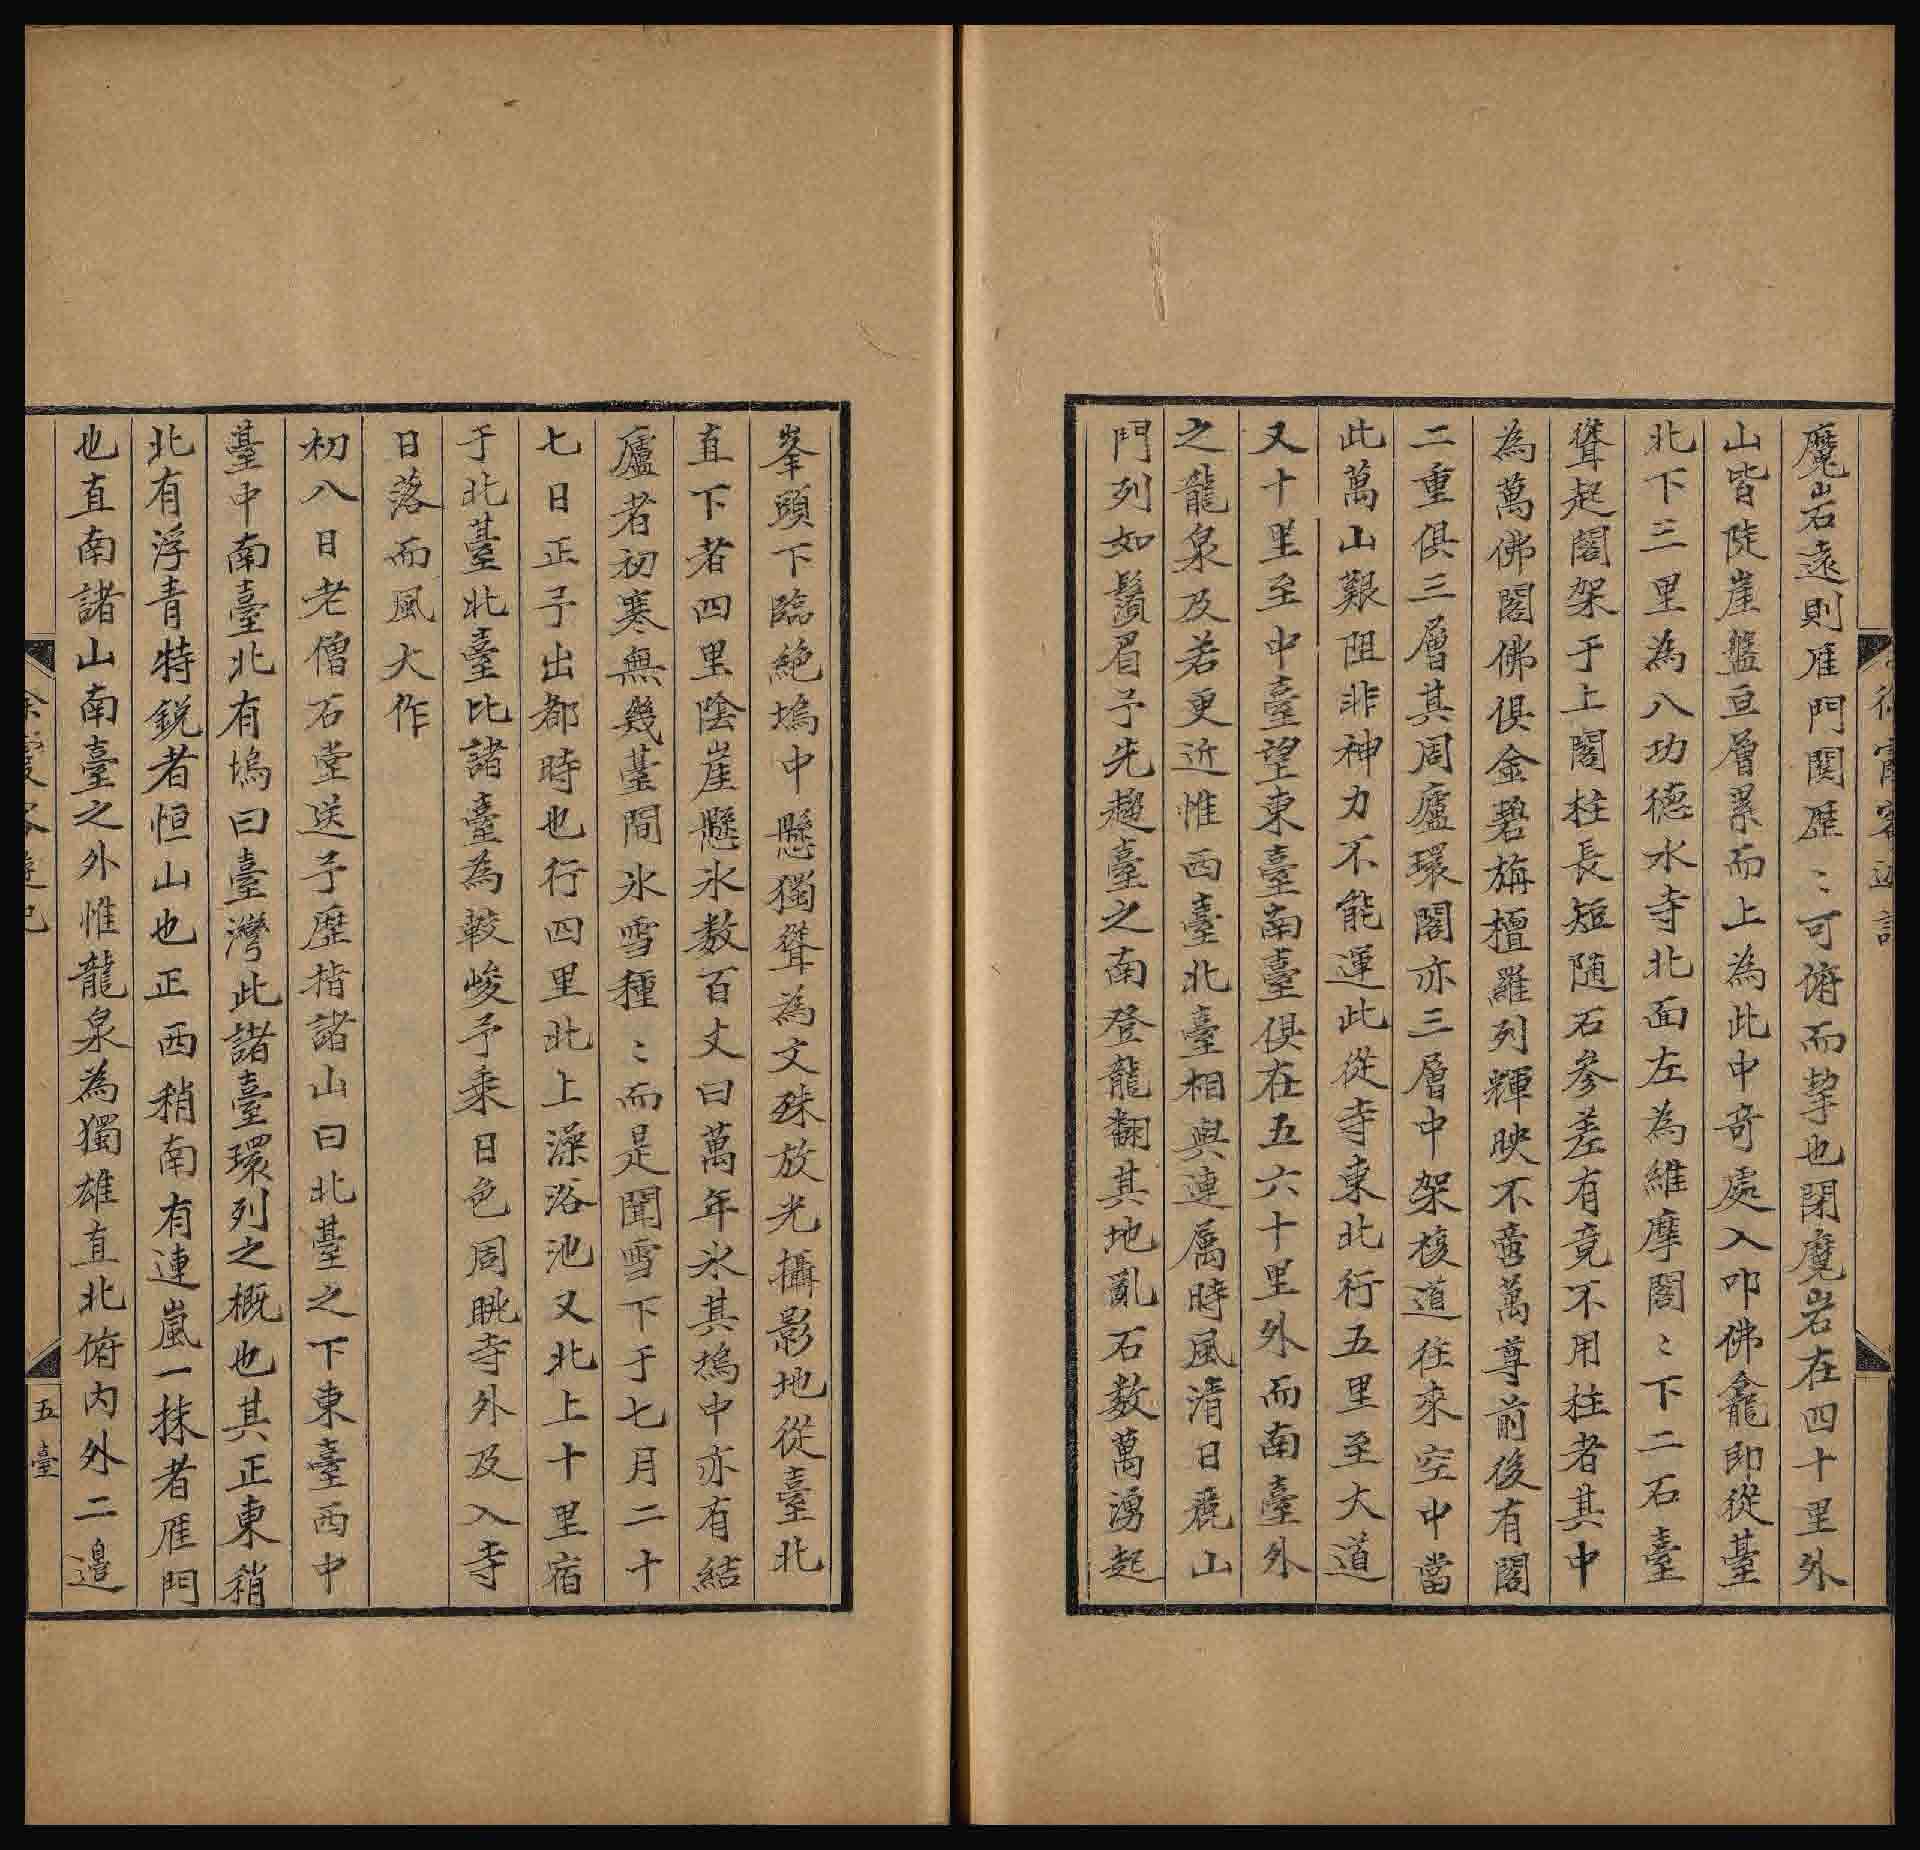 徐霞客遊記
魔岩遠則雁門關歷〻可俯而挈也閉魔岩在四十里外
山皆陡崖盤亘層累而上為此中奇處入叩佛龕即從臺
北下三里為八功德水寺北面左為維摩閣〻下二石臺
聳起閣架于上閣柱長短随石参差有竟不用柱者其中
為萬佛閣佛俱金碧旃檀羅列輝映不啻萬尊前後有閣
二重俱三層其周廬環閣亦三層中架複道往來空中當
此萬山艱阻非神力不能運此從寺東北行五里至大道
又十里至中臺望東臺南臺俱在五六十里外而南臺外
之龍泉及若更近惟西臺北臺相與連属時風清日麗山
門列如鬚眉予先趨臺之南登龍翻其地亂石数萬湧起
峯頭下臨絶塢中懸獨聳為文殊放光攝影地從臺北
直下者四里陰崖懸氷数百丈曰萬年氷其塢中亦有結
廬者初寒無幾䑓間氷雪種〻而是聞雪下于七月二十
七日正予出都時也行四里北上澡浴池又北上十里宿
于北䑓北臺比諸臺為較峻予乘日色周眺寺外及入寺
日落而風大作
初八日老僧石堂送予歷指諸山曰北䑓之下東臺西中
䑓中南臺北有塢曰臺灣此諸臺環列之概也其正東稍
北有浮青特鋭者恒山也正西稍南有連嵐一抹者雁門
也直南諸山南臺之外惟龍泉為獨雄直北俯内外二邉
徐霞客遊記
五臺